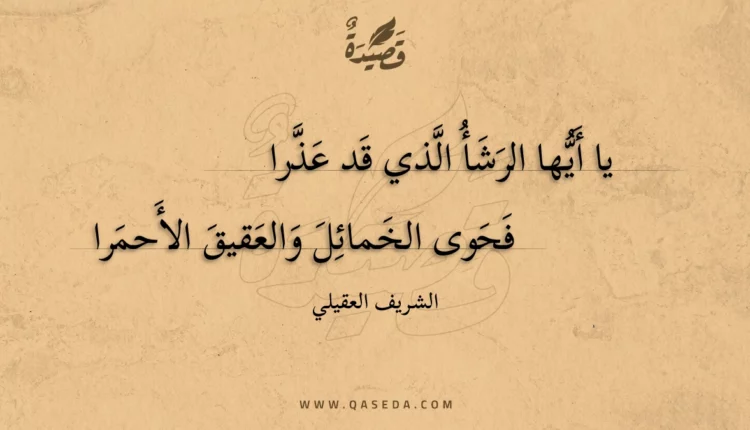 قَصِيْدَةٌ
يا أَيُّها الرَشَأُ الَّذي قَد عَذَّرا
فَحَوى الخَمائِلَ وَالعَقيقَ الأَحمَرا
الشريف العقيلي
WWW.QASEDA.COM